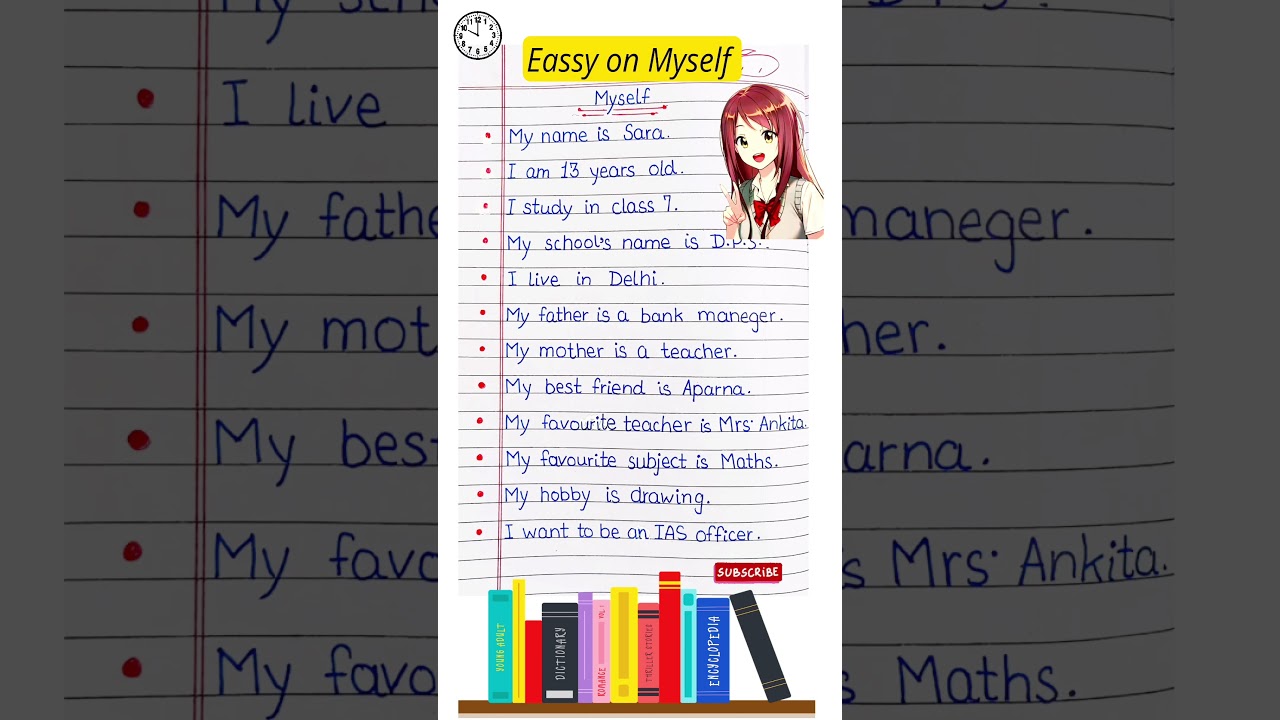 Eassy on Myself
Myself
My name is Sara.
I am 13 years old.
I study in class 7.
My school's name is D.P.S..
I live in Delhi.
My father is a bank maneger.
My mother is a teacher.
My best friend is Aparna.
My favourite teacher is Mrs. Ankita.
My favourite subject is Maths.
My hobby is drawing.
I want to be an IAS officer.
SUBSCRIBE
YOUNG ADULT
DICTIONARY
ROMANCE VOL. 1
THRILLER STORIES
ENCYCLOPEDIA
I live
My fathe
maneger.
My mot
her.
My bes
arna.
My favo
s Mrs. Ankita.
My favo
s Maths.